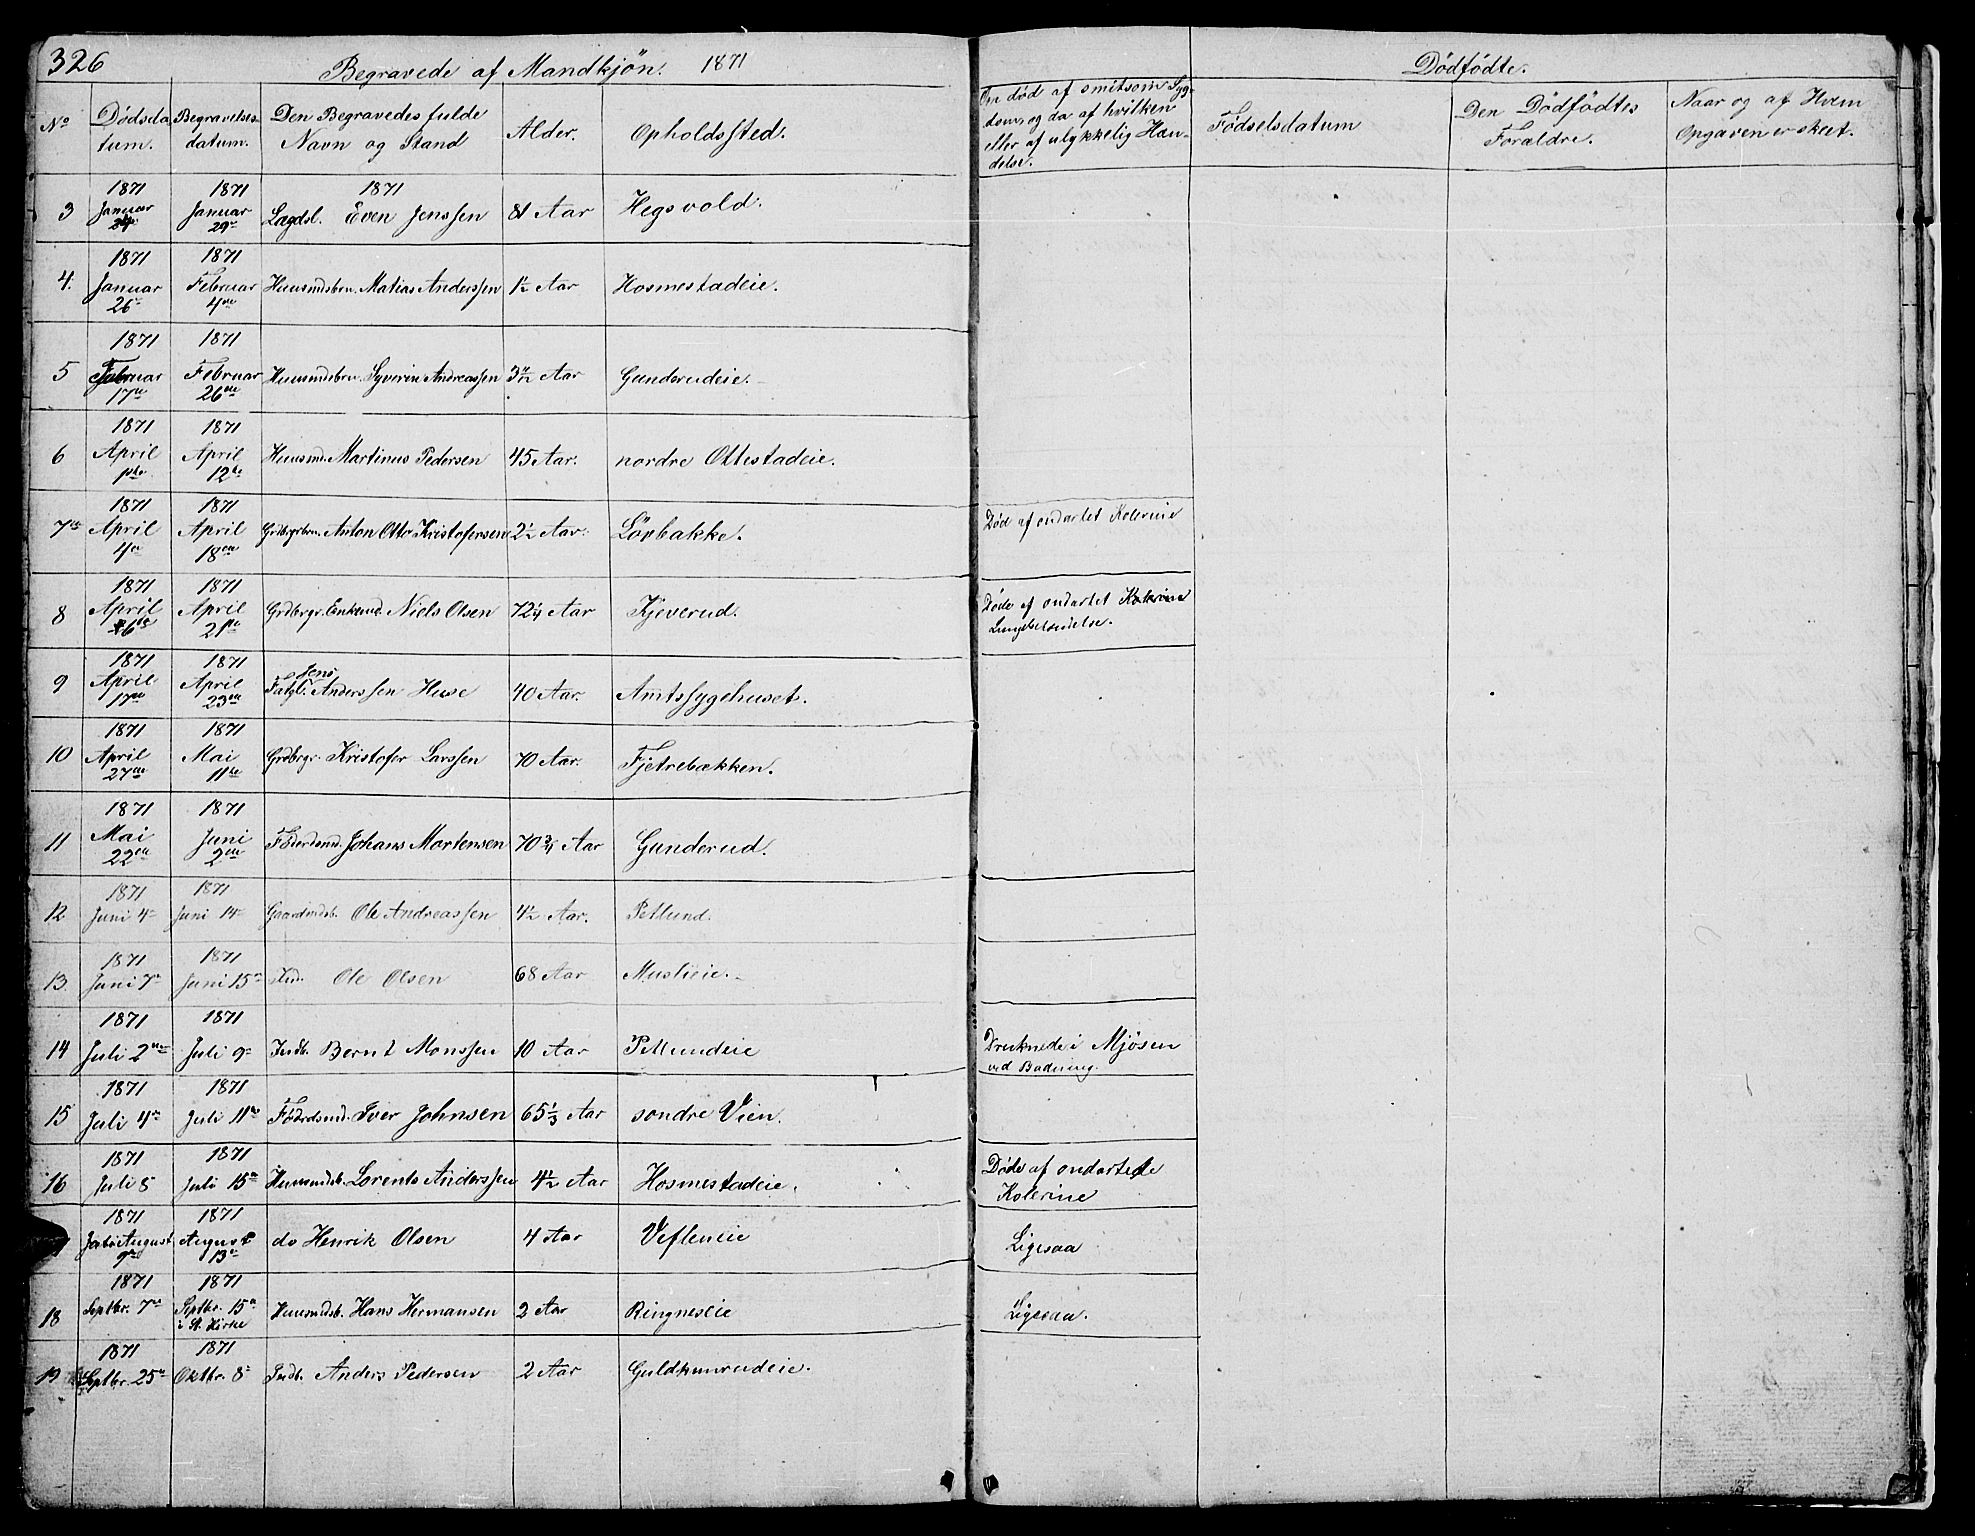 326
Begravede af Mandkjön. 1871
Dödfödte.
No Dödsdatum. Begravelsesdatum. Den Begravedes fulde Navn og Stand Alder. Opholdssted. Om död af smitsom Sygdom og da af hvilken eller af ulykkelig Hændelse. Födselsdatum Den Dödfödtes Forældre. Naar og af Hvem Opgaven er skeet.
3 1871 Januar 1871 Januar 29 1871 Lægdsl. Even Jenssen 81 Aar Hegsvold.
4. 1871 Januar 26 1871 Februar 4de Huusmdsbrn. Matias Anderssen 1½ Aar Hosmestadeie.
5 1871 Februar 17de 1871 Februar 26de Huusmdsbrn. Syverin Andreassen 3 Aar Gunderudeie.
6 1871 April 1ste 1871 April 12te Huusmd. Martinus Pedersen 45 Aar. nordre Ottestadeie.
7de 1871 April 4de 1871 April 18de Grdbrgrbrn. Anton Otto Kristofersen 2½ Aar. Lörbakke. Död af ondartet Kolerine
8 1871 April 1871 April 21de Grdbrgr. Enkemd. Niels Olsen 72¼ Aar Kjeverud. Döde af ondartet Kolerine
Lungebetændelse.
9 1871 April 17de 1871 April 23de Fatgl. Jens Anderssen Huse 40 Aar. Amtssygehuset.
10 1871 April 27de 1871 Mai 11te Grdbrgr. Kristofer Larssen 70 Aar. Fjetrebakken.
11 1871 Mai 22de 1871 Juni 2den Föderdsmd. Johans Mortensen 70¾ Aar Gunderud.
12 1871 Juni 4 1871 Juni 14 Gaardmdsb. Ole Andreassen 4½ Aar. Petlund.
13. 1871 Juni 7 1871 Juni 15 Ind. Ole Olsen 68 Aar Muslieie.
14 1871 Juli 2den 1871 Juli 9 Indb. Bernt Monssen 10 Aar Petlundeie Druknede i Mjösen
ved Badning.
15 1871 Juli 4de 1871 Juli 11te Föderdsmd. Iver Johnsen 65⅓ Aar sondre Vien.
16 1871 Juli 5 1871 Juli 15 Huusmdsb. Lorents Anderssen 4½ Aar Hosmestadeie. Döde af ondartede
Kolerine
1871 August 9de 1871 August 13 do Henrik Olsen 4 Aar Vefleneie Ligesaa
18 1871 Septbr. 7de 1871 Septbr. 15 i St. Kirke Huusmdsb. Hans Hermansen 2 Aar Ringneseie Ligesaa.
19 1871 Septbr. 25 1871 Oktbr. 8 Indb. Anders Pedersen 2 Aar Guldhunrudeie.